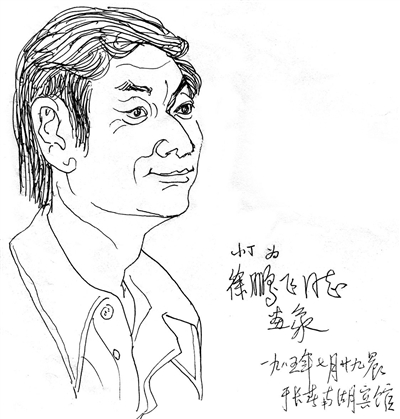 小丁 为
徐鹏飞同志
画象
一九八五年七月十九晨
于长春南湖宾馆